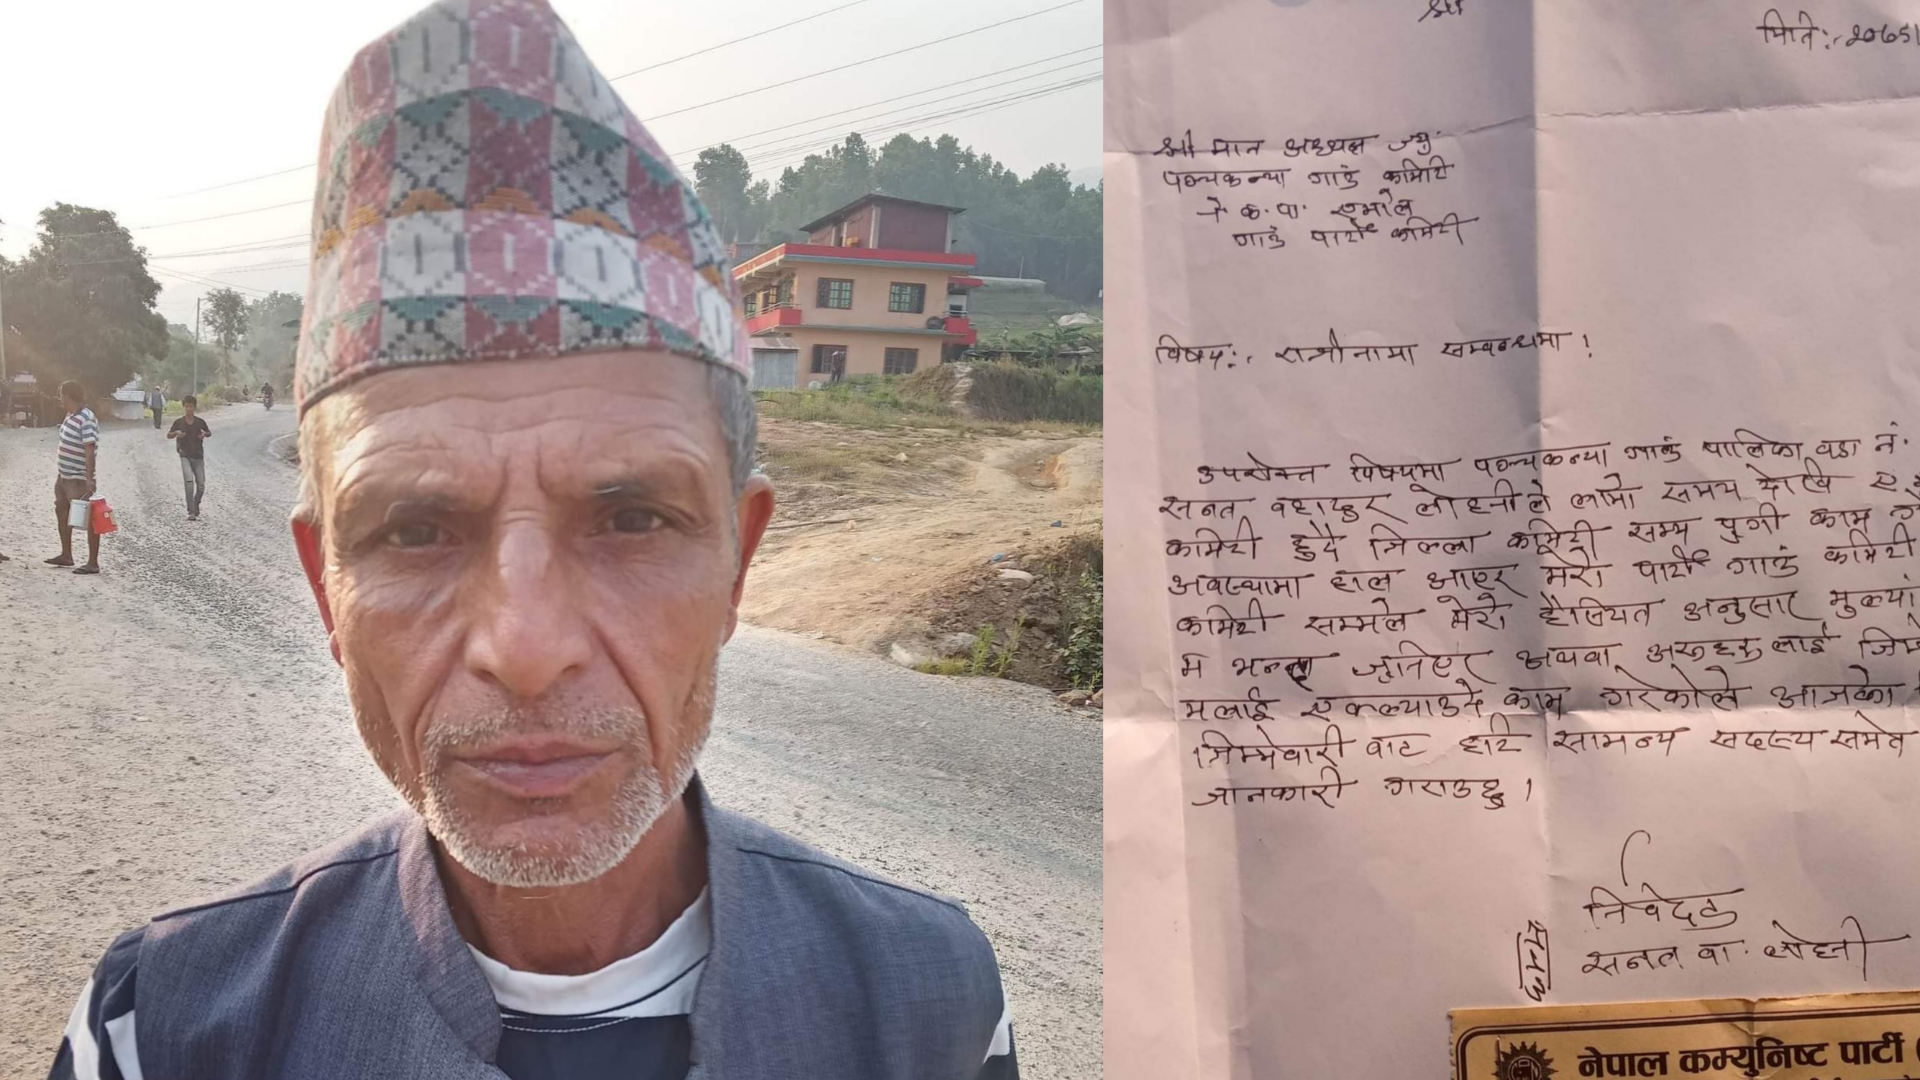 श्री
मिति:- २०७९।
श्री मान अध्यक्ष ज्यु
पञ्चकन्या गाउं कमिटी
ने. क. पा. एमाले
गाउं पार्टी कमिटी
विषय:- राजीनामा सम्वन्धमा !
उपरोक्त विषयमा पञ्चकन्या गाउं पालिका वडा नं.
सनत वहादुर लोहनीले लामो समय देखि
कमिटी हुदै जिल्ला कमिटी सम्म पुगी काम
अवस्थामा हाल आएर मेरो पार्टी गाउं कमिटी
कमिटी सम्मले मेरो हैसियत अनुसार
म भन्दा जुनिएर अथवा अरुहरुलाई
मलाई एकल्याउदै काम गरेकोले आजका
जिम्मेवारी वाट हटि सामन्य सदस्य समेत
जानकारी गराउछु ।
निवेदक
सनत वा. लोहनी
नेपाल कम्युनिष्ट पार्टी (